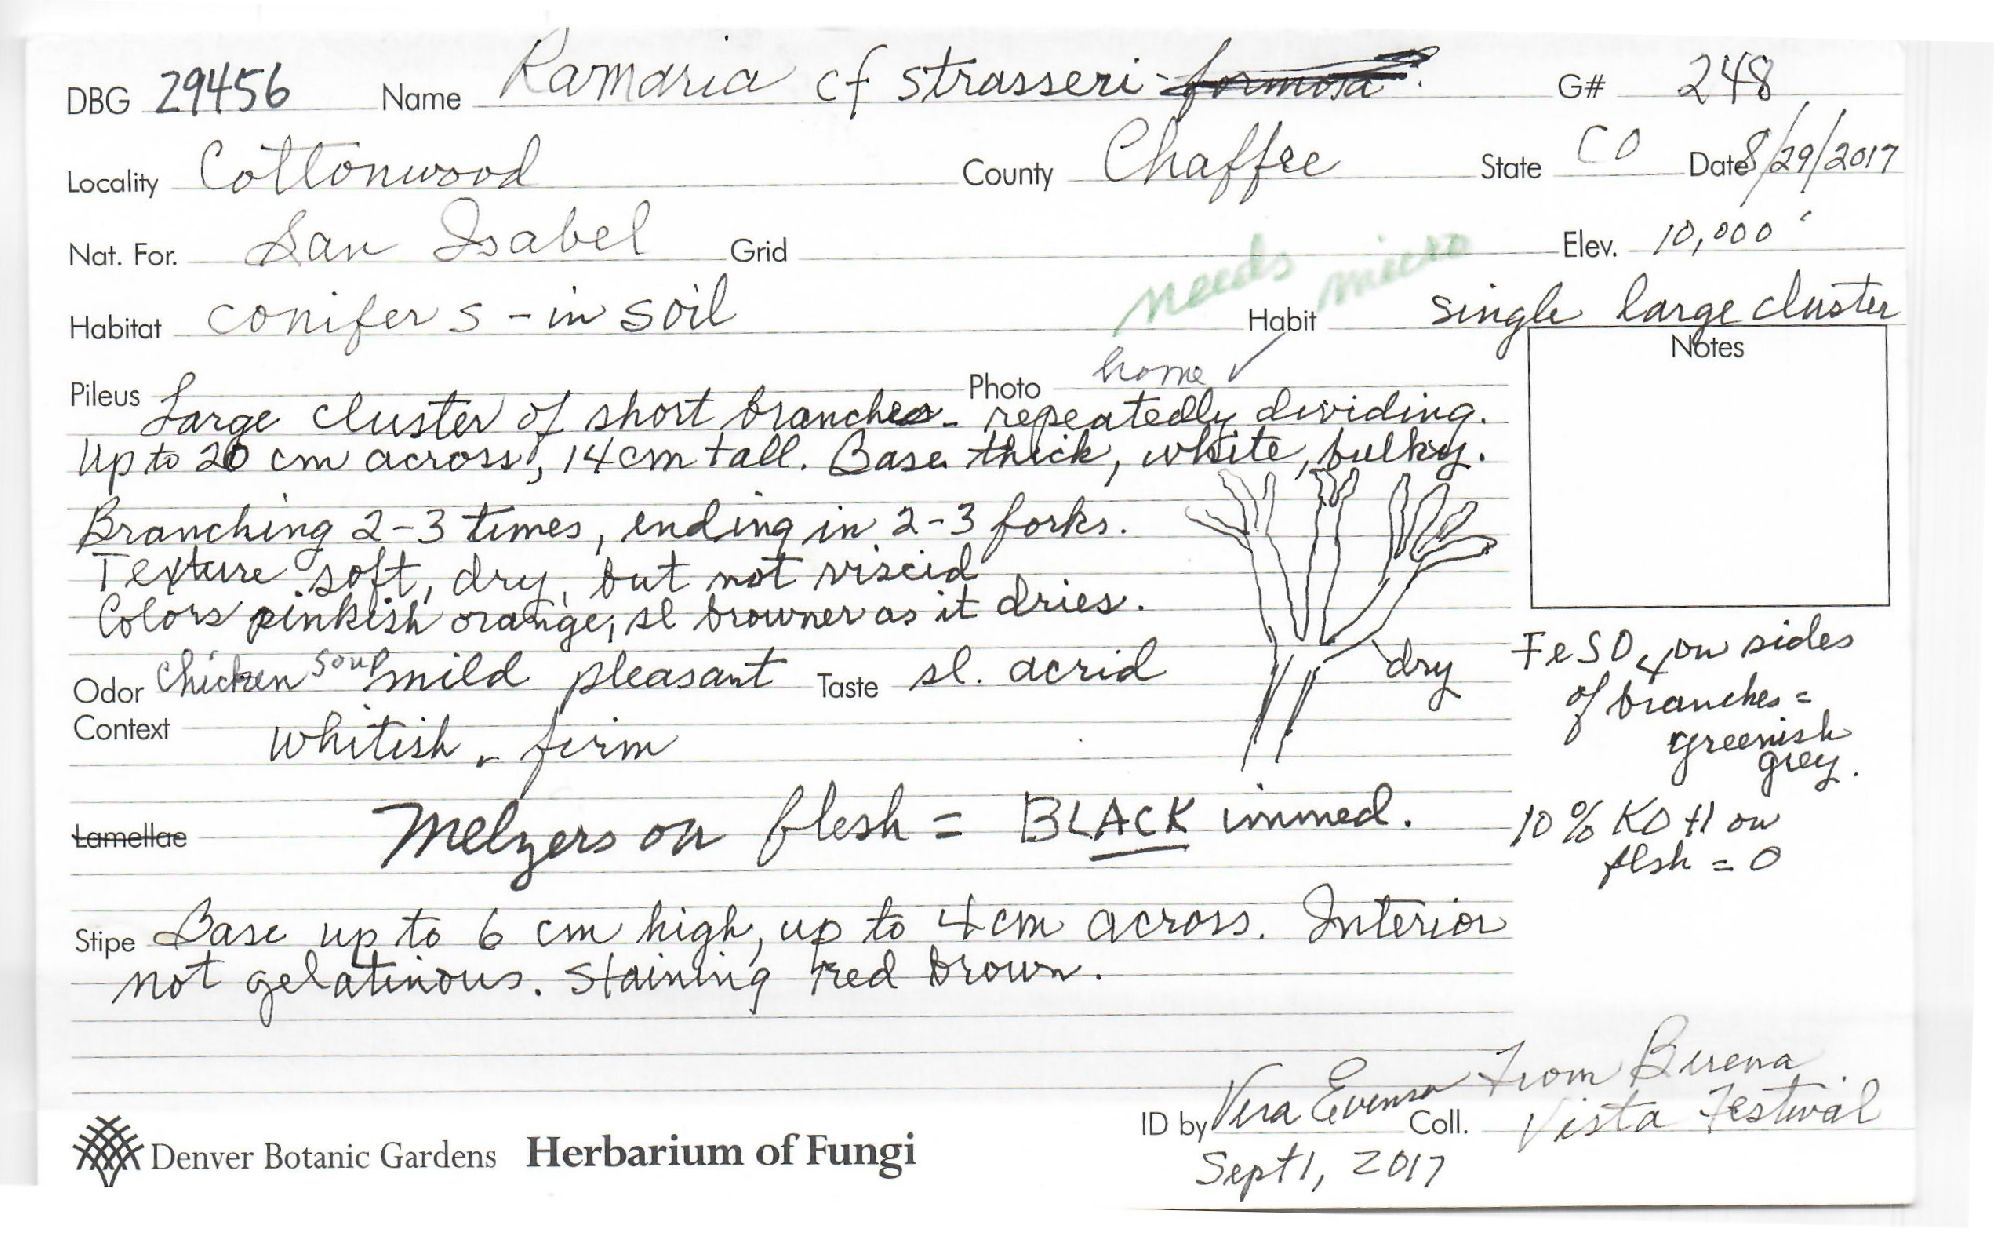 DBG 29456 Name Ramaria cf strasseri - formosa. G# 248
Locality Cottonwood County Chaffee State CO Date 8/29/2017
Nat. For. San Isabel Grid Elev. 10,000'
needs micro
Habitat conifers - in soil Habit single large cluster
Notes
Pileus Photo home ✓
Large cluster of short branches - repeatedly dividing.
Up to 20 cm across, 14 cm tall. Base thick, white, bulky.
Branching 2-3 times, ending in 2-3 forks.
Texture soft, dry, but not viscid
Colors pinkish orange, sl browner as it dries.
Odor Chicken soup mild pleasant Taste sl. acrid
dry
FeSO4 on sides
of branches =
greenish
grey.
Context whitish - firm
Lamellae Melzers on flesh = BLACK immed.
10% KOH on
flsh = 0
Stipe Base up to 6 cm high, up to 4 cm across. Interior
not gelatinous. Staining red brown.
ID by Vera Evenson Coll. From Buena
Vista Festival
Sept 1, 2017
Denver Botanic Gardens Herbarium of Fungi